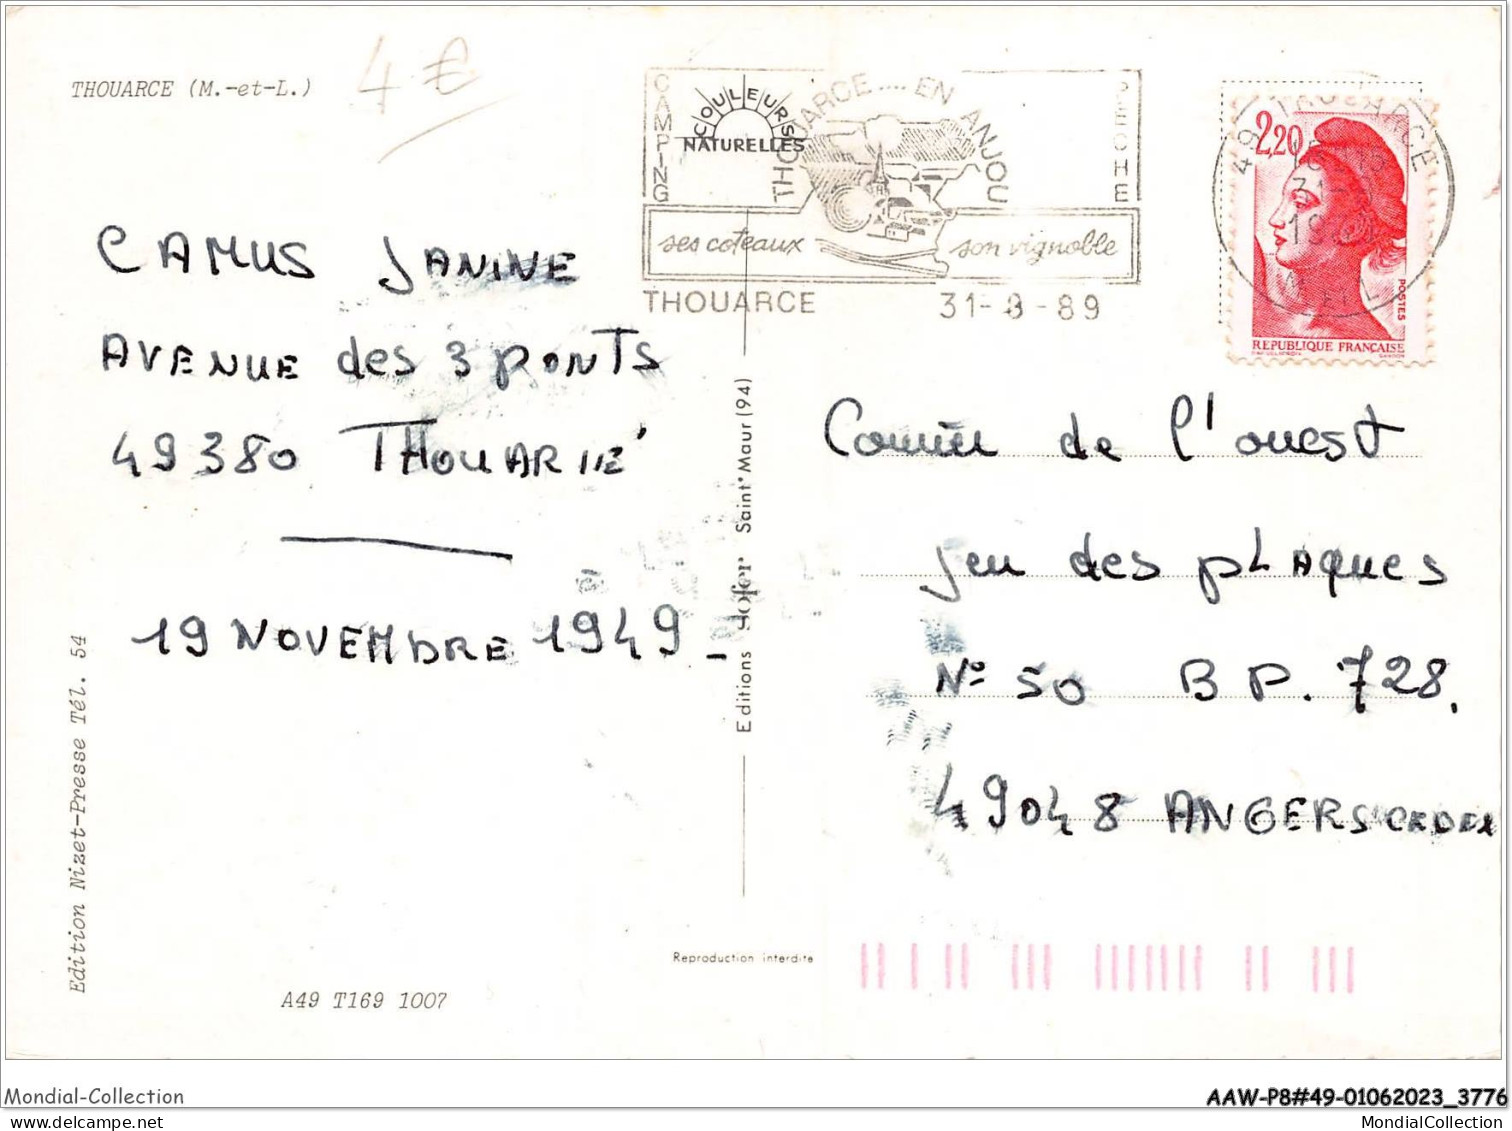 THOUARCE (M.-et-L.)
4 €
CAMPING
COULEURS
NATURELLES
THOUARCE.... EN ANJOU
PECHE
ses coteaux son vignoble
THOUARCE 31-8-89
49 THOUARCE
2,20
POSTES
REPUBLIQUE FRANÇAISE
CAMUS JANINE
AVENUE des 3 PONTS
49380 THOUARCÉ
19 NOVEMBRE 1949_
Courrier de l'ouest
Jeu des plaques
N° 50 BP. 728.
49048 ANGERS CEDEX
Edition Nizet-Presse Tél. 54
Editions Saint-Maur (94)
Reproduction interdite
A49 T169 1007
Mondial-Collection
AAW-P8#49-01062023_3776
MondialCollection